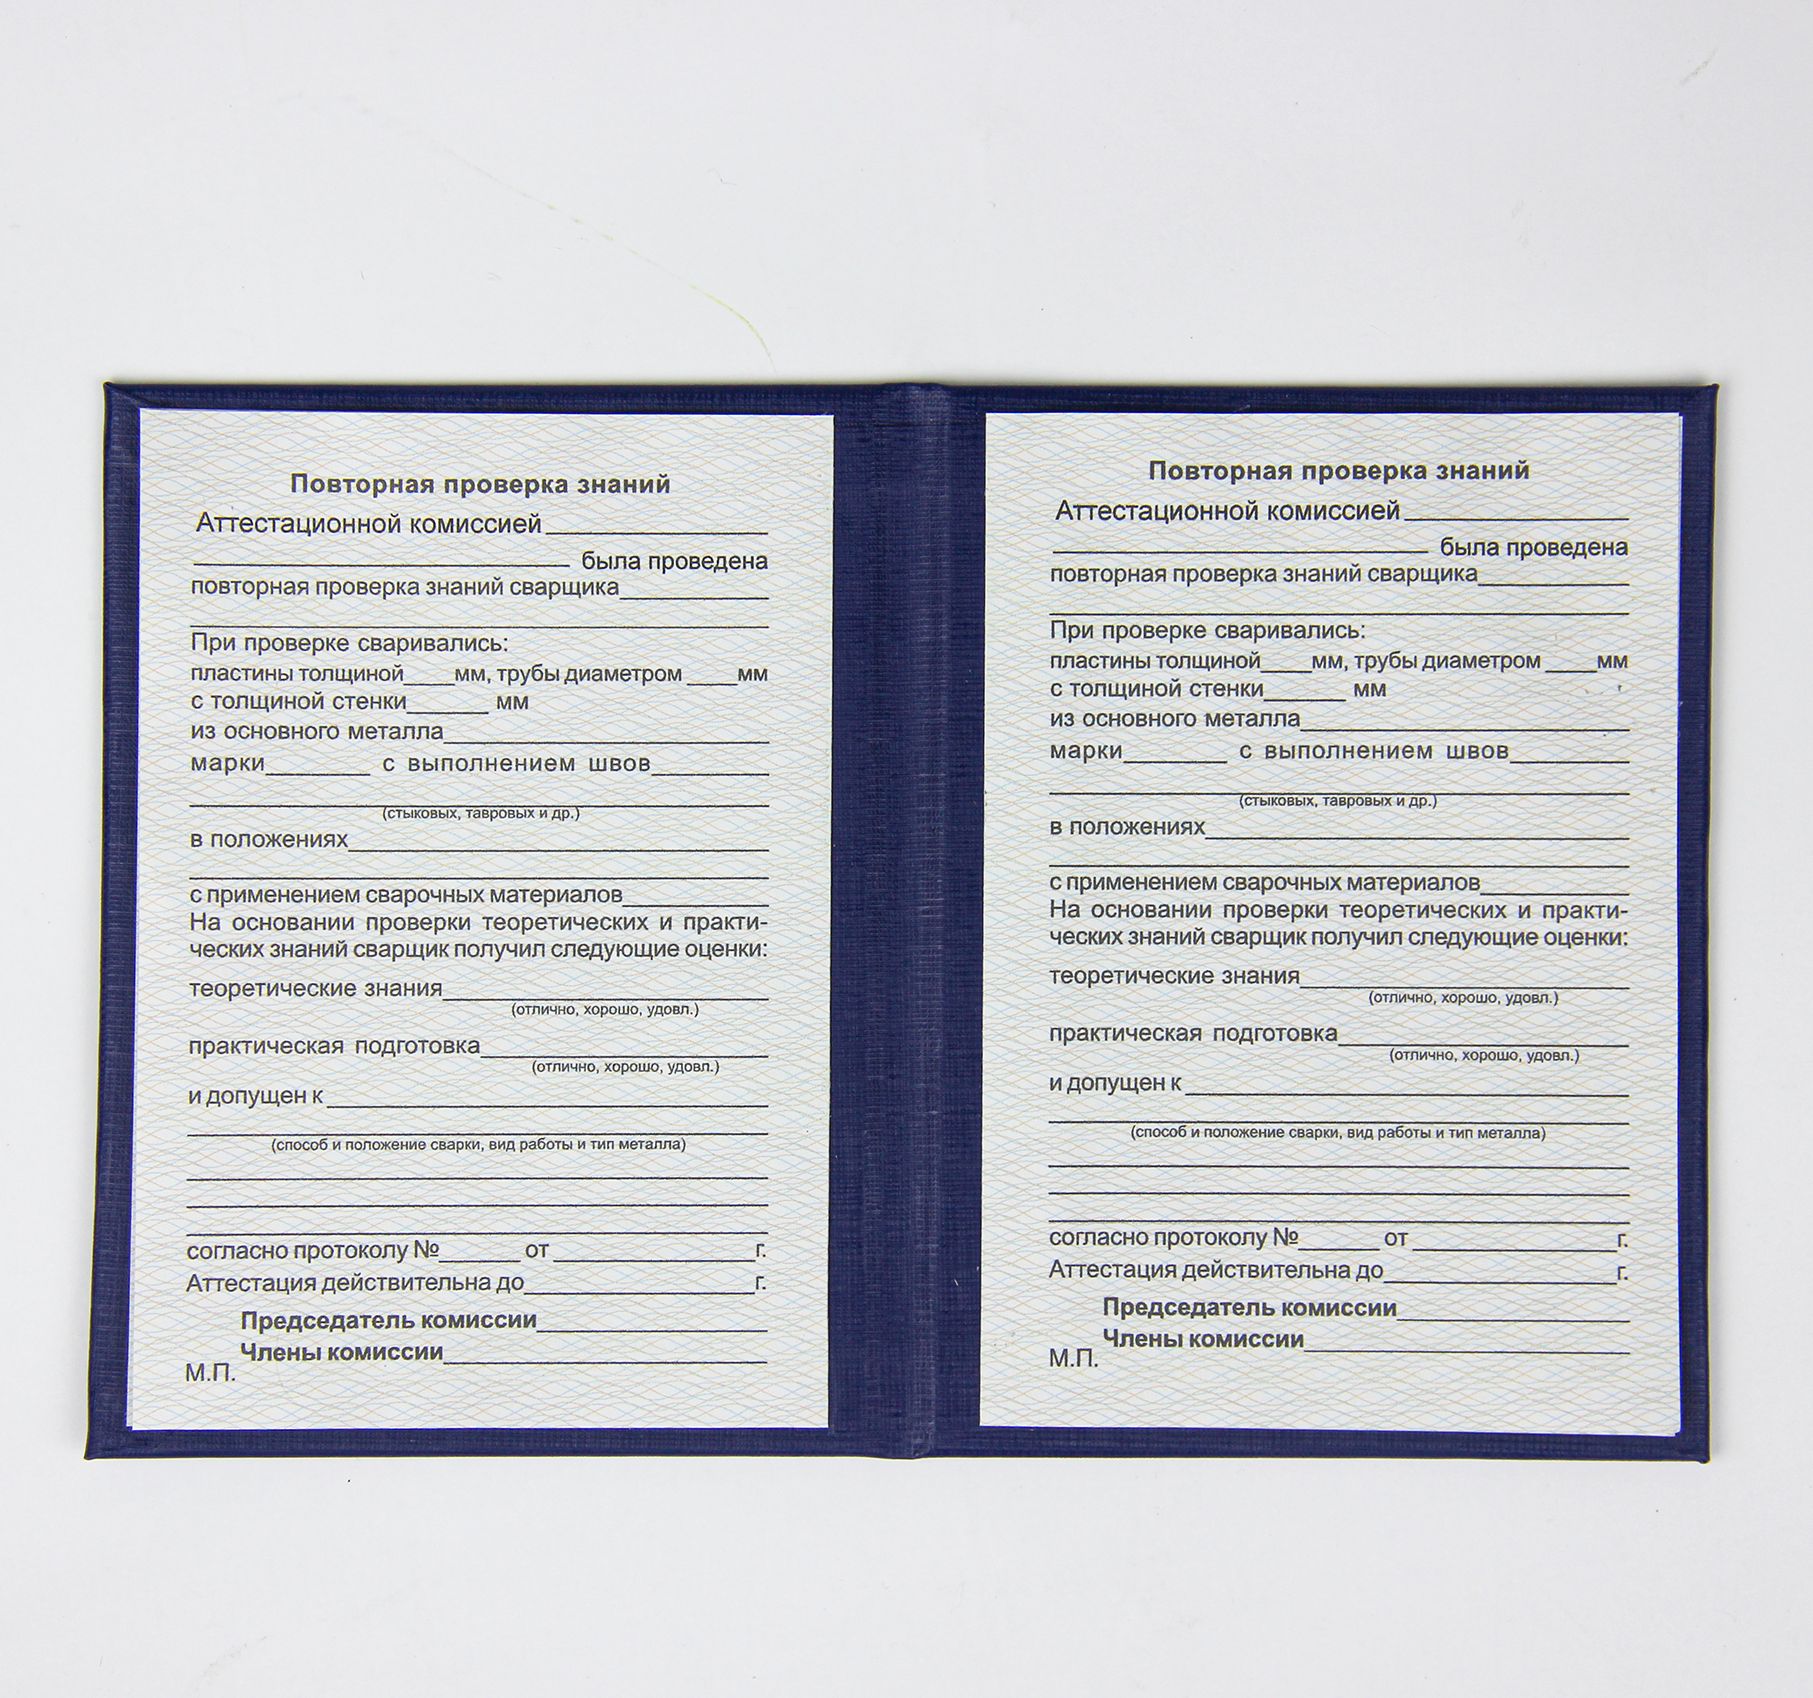 Повторная проверка знаний
Аттестационной комиссией
была проведена
повторная проверка знаний сварщика
При проверке сваривались:
пластины толщиной____мм, трубы диаметром ____мм
с толщиной стенки______ мм
из основного металла
марки________ с выполнением швов
(стыковых, тавровых и др.)
в положениях
с применением сварочных материалов
На основании проверки теоретических и практи-
ческих знаний сварщик получил следующие оценки:
теоретические знания
(отлично, хорошо, удовл.)
практическая подготовка
(отлично, хорошо, удовл.)
и допущен к
(способ и положение сварки, вид работы и тип металла)
согласно протоколу №______ от ________________г.
Аттестация действительна до__________________г.
Председатель комиссии
Члены комиссии
М.П.
Повторная проверка знаний
Аттестационной комиссией
была проведена
повторная проверка знаний сварщика
При проверке сваривались:
пластины толщиной____мм, трубы диаметром ____мм
с толщиной стенки______ мм
из основного металла
марки________ с выполнением швов
(стыковых, тавровых и др.)
в положениях
с применением сварочных материалов
На основании проверки теоретических и практи-
ческих знаний сварщик получил следующие оценки:
теоретические знания
(отлично, хорошо, удовл.)
практическая подготовка
(отлично, хорошо, удовл.)
и допущен к
(способ и положение сварки, вид работы и тип металла)
согласно протоколу №______ от ________________г.
Аттестация действительна до__________________г.
Председатель комиссии
Члены комиссии
М.П.